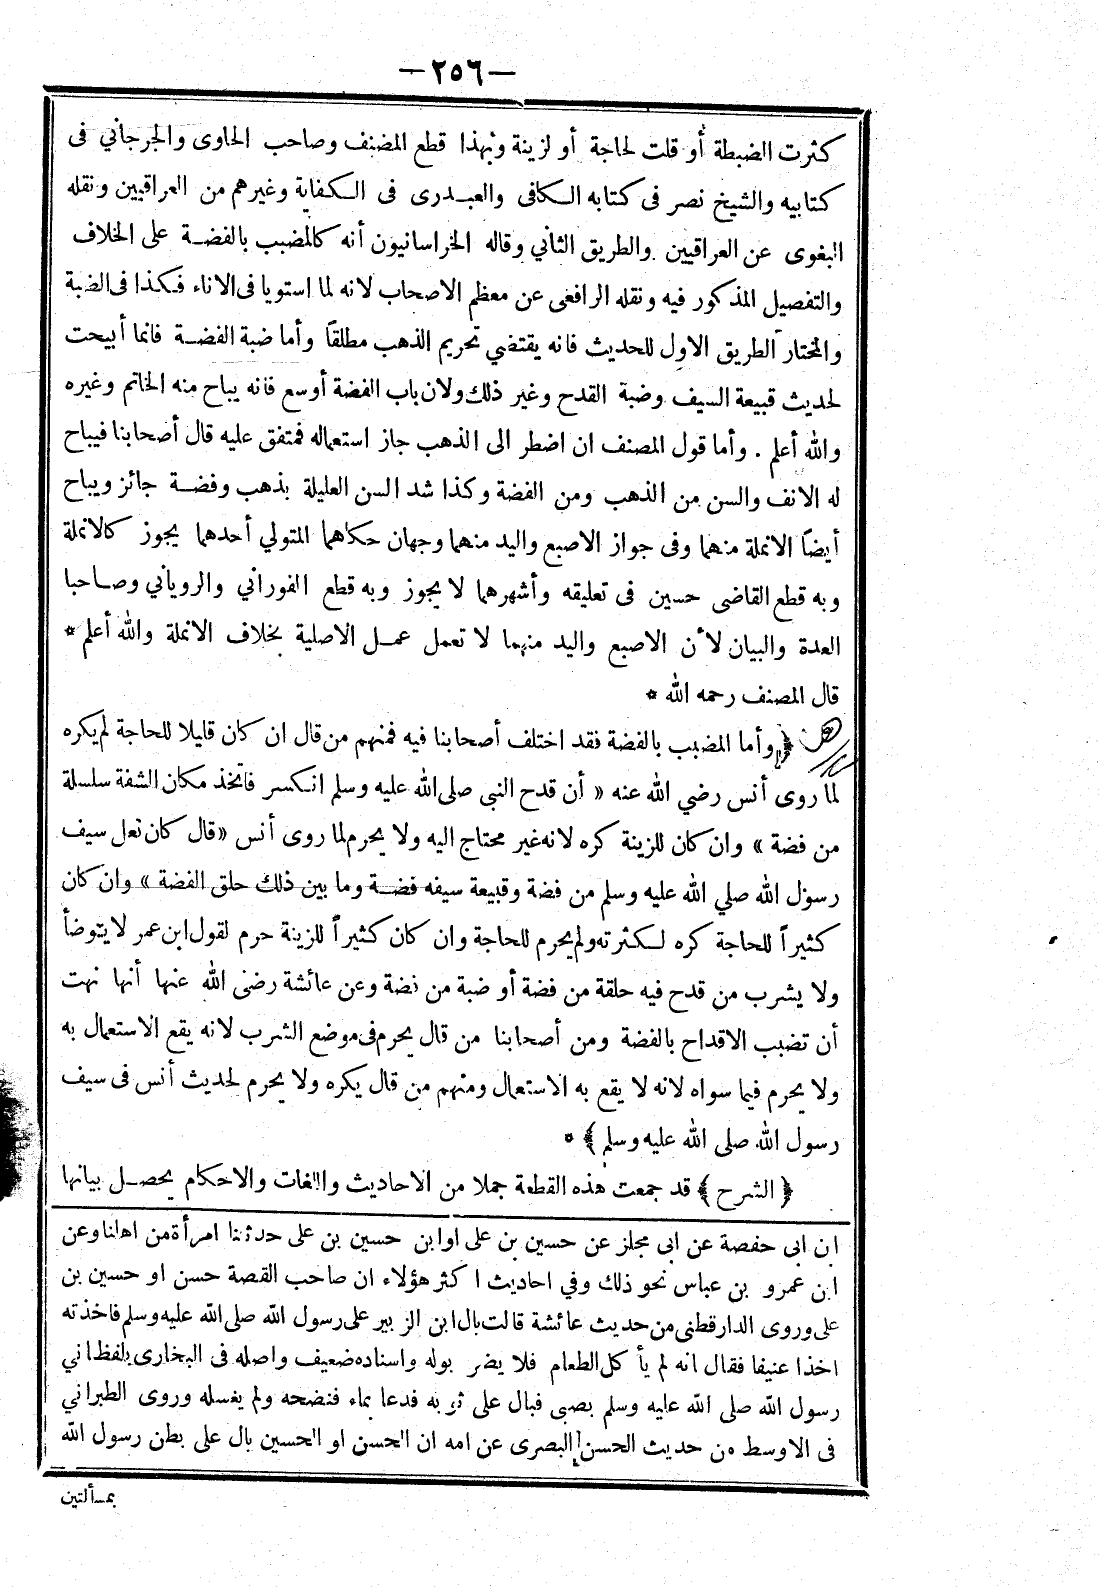 — ٢٥٦ —
كثرت الضبطة أو قلت لحاجة أو لزينة وبهذا قطع المصنف وصاحب الحاوى والجرجاني فى
كتابيه والشيخ نصر فى كتابه الكافى والعبدرى فى الكفاية وغيرهم من العراقيين ونقله
البغوى عن العراقيين والطريق الثاني وقاله الخراسانيون أنه كالمضبب بالفضة على الخلاف
والتفصيل المذكور فيه ونقله الرافعى عن معظم الاصحاب لانه لما استويا فى الاناء فكذا فى الضبة
والمختار الطريق الاول للحديث فانه يقتضي تحريم الذهب مطلقاً وأما ضبة الفضة فانما أبيحت
لحديث قبيعة السيف وضبة القدح وغير ذلك ولان باب الفضة أوسع فانه يباح منه الخاتم وغيره
والله أعلم . وأما قول المصنف ان اضطر الى الذهب جاز استعماله فمتفق عليه قال أصحابنا فيباح
له الانف والسن من الذهب ومن الفضة وكذا شد السن العليلة بذهب وفضة جائز ويباح
أيضاً الانملة منهما وفى جواز الاصبع واليد منهما وجهان حكاهما المتولي أحدهما يجوز كالانملة
وبه قطع القاضى حسين فى تعليقه وأشهرهما لا يجوز وبه قطع الفوراني والروياني وصاحبا
العدة والبيان لأن الاصبع واليد منهما لا تعمل عمل الاصلية بخلاف الانملة والله أعلم *
قال المصنف رحمه الله *
﴿ وأما المضبب بالفضة فقد اختلف أصحابنا فيه فمنهم من قال ان كان قليلا للحاجة لم يكره
لما روى أنس رضي الله عنه « أن قدح النبى صلى الله عليه وسلم انكسر فاتخذ مكان الشفة سلسلة
من فضة » وان كان للزينة كره لانه غير محتاج اليه ولا يحرم لما روى أنس «قال كان نعل سيف
رسول الله صلي الله عليه وسلم من فضة وقبيعة سيفه فضة وما بين ذلك حلق الفضة » وان كان
كثيراً للحاجة كره لكثرته ولم يحرم للحاجة وان كان كثيراً للزينة حرم لقول ابن عمر لا يتوضأ
ولا يشرب من قدح فيه حلقة من فضة أو ضبة من نضة وعن عائشة رضى الله عنها أنها نهت
أن تضبب الاقداح بالفضة ومن أصحابنا من قال يحرم فى موضع الشرب لانه يقع الاستعمال به
ولا يحرم فيما سواه لانه لا يقع به الاستعمال ومنهم من قال يكره ولا يحرم لحديث أنس فى سيف
رسول الله صلى الله عليه وسلم ﴾ *
﴿ الشرح ﴾ قد جمعت هذه القطعة جملا من الاحاديث واللغات والاحكام يحصل بيانها
ان ابى حفصة عن ابى مجلز عن حسين بن على اوابن حسين بن على حدثنا امرأة من اهلنا وعن
ابن عمرو بن عباس نحو ذلك وفي احاديث اكثر هؤلاء ان صاحب القصة حسن او حسين بن
على وروى الدارقطنى من حديث عائشة قالت بال ابن الزبير على رسول الله صلى الله عليه وسلم فاخذته
اخذا عنيفا فقال انه لم يأكل الطعام فلا يضر بوله واسناده ضعيف واصله فى البخارى بلفظ اني
رسول الله صلى الله عليه وسلم بصبى فبال على ثوبه فدعا بماء فنضحه ولم يغسله وروى الطبراني
فى الاوسط من حديث الحسن البصرى عن امه ان الحسن او الحسين بال على بطن رسول الله
بمسألتين